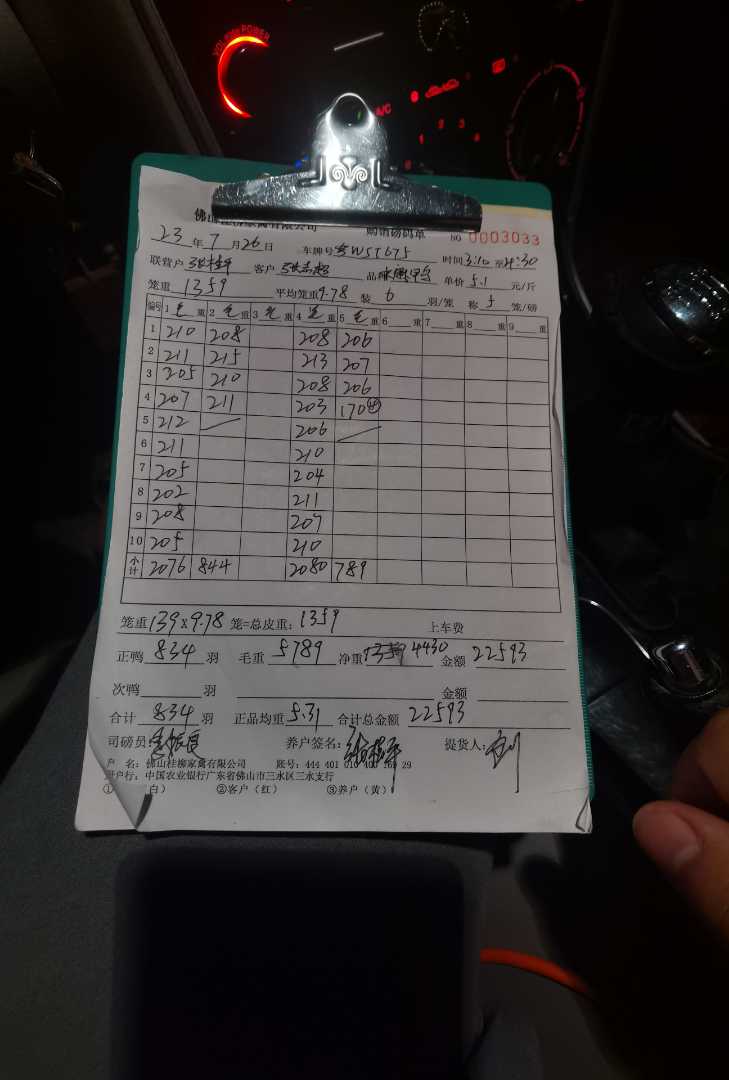 VOL POWER
A/C
1 2 3 4
佛山桂柳家禽有限公司 购销磅码单 NO 0003033
23 年 7 月 26 日 车牌号 WST675 时间 3:10 至 4:30
联营户 客户 品 单价 5.1 元/斤
笼重 1359 平均笼重 9.78 装 6 羽/笼 称 5 笼/磅
编号 1 毛 重 2 毛 重 3 毛 重 4 毛 重 5 毛 重 6 重 7 重 8 重 9 重
1 210 208 208 206
2 211 215 213 207
3 205 210 208 206
4 207 211 203 170 ④
5 212 206
6 211 210
7 205 204
8 202 211
9 208 207
10 205 210
小计 2076 844 2080 789
笼重 139×9.78 笼=总皮重: 1359 上车费
正鸭 834 羽 毛重 5789 净重 4430 金额 22593
次鸭 羽 金额
合计 834 羽 正品均重 5.31 合计总金额 22593
司磅员 养户签名: 提货人:
户 名: 佛山桂柳家禽有限公司 账号: 444 401 010 400 169 29
开户行: 中国农业银行广东省佛山市三水区三水支行
① (白) ②客户(红) ③养户(黄)